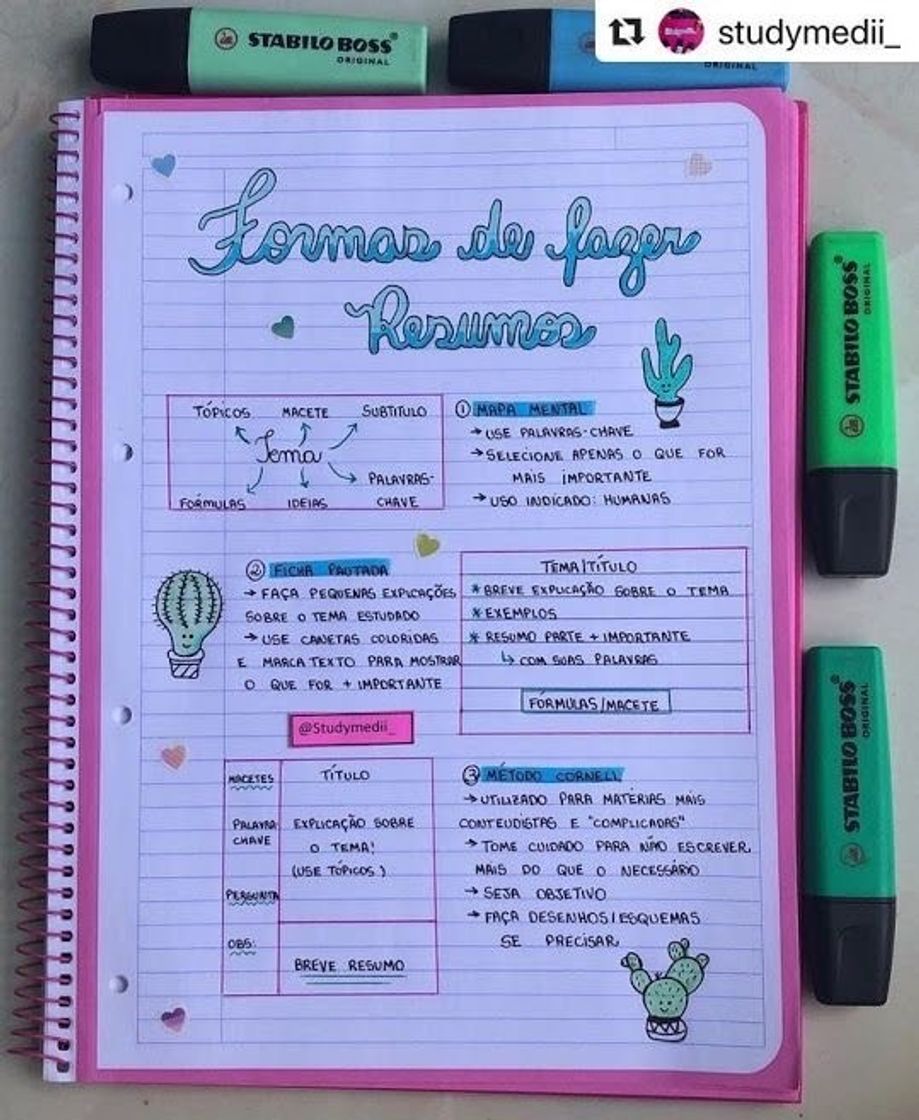 STABILO BOSS
ORIGINAL
ORIGINAL
studymedii_
Formas de fazer
Resumos
TÓPICOS MACETE SUBTITULO
Tema
FÓRMULAS IDEIAS PALAVRAS-
CHAVE
① MAPA MENTAL
→ USE PALAVRAS-CHAVE
→ SELECIONE APENAS O QUE FOR
MAIS IMPORTANTE
→ USO INDICADO: HUMANAS
② FICHA PAUTADA
→ FAÇA PEQUENAS EXPLICAÇÕES
SOBRE O TEMA ESTUDADO
→ USE CANETAS COLORIDAS
E MARCA TEXTO PARA MOSTRAR
O QUE FOR + IMPORTANTE
TEMA/TÍTULO
* BREVE EXPLICAÇÃO SOBRE O TEMA
* EXEMPLOS
* RESUMO PARTE + IMPORTANTE
↳ COM SUAS PALAVRAS
FÓRMULAS/MACETE
@Studymedii_
MACETES
PALAVRA
CHAVE
PERGUNTA
OBS:
TÍTULO
EXPLICAÇÃO SOBRE
O TEMA!
(USE TÓPICOS)
BREVE RESUMO
③ MÉTODO CORNELL
→ UTILIZADO PARA MATÉRIAS MAIS
CONTEUDISTAS E "COMPLICADAS"
→ TOME CUIDADO PARA NÃO ESCREVER
MAIS DO QUE O NECESSÁRIO
→ SEJA OBJETIVO
→ FAÇA DESENHOS/ESQUEMAS
SE PRECISAR
STABILO BOSS
ORIGINAL
STABILO BOSS
ORIGINAL